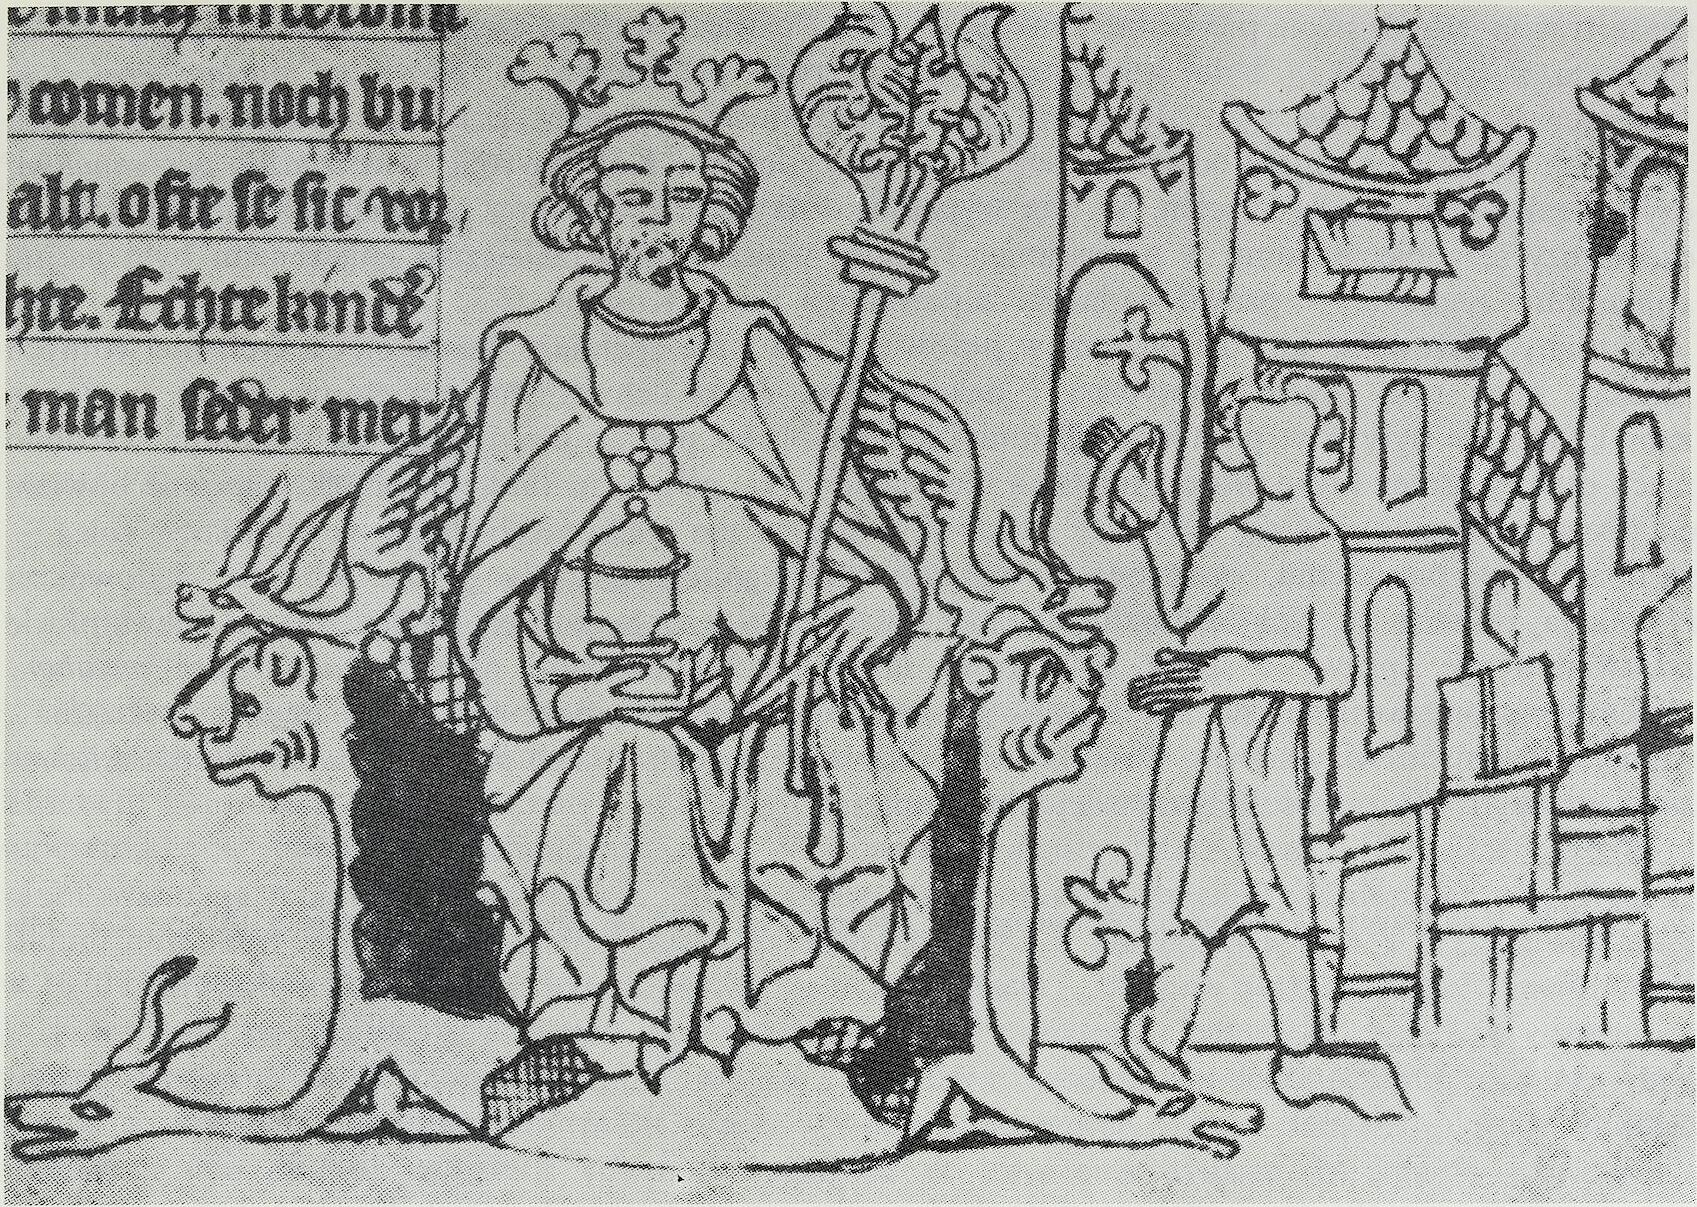 comen. noch bu
alt. ofte se sic vor
hte. Echte kinde
man seder mer